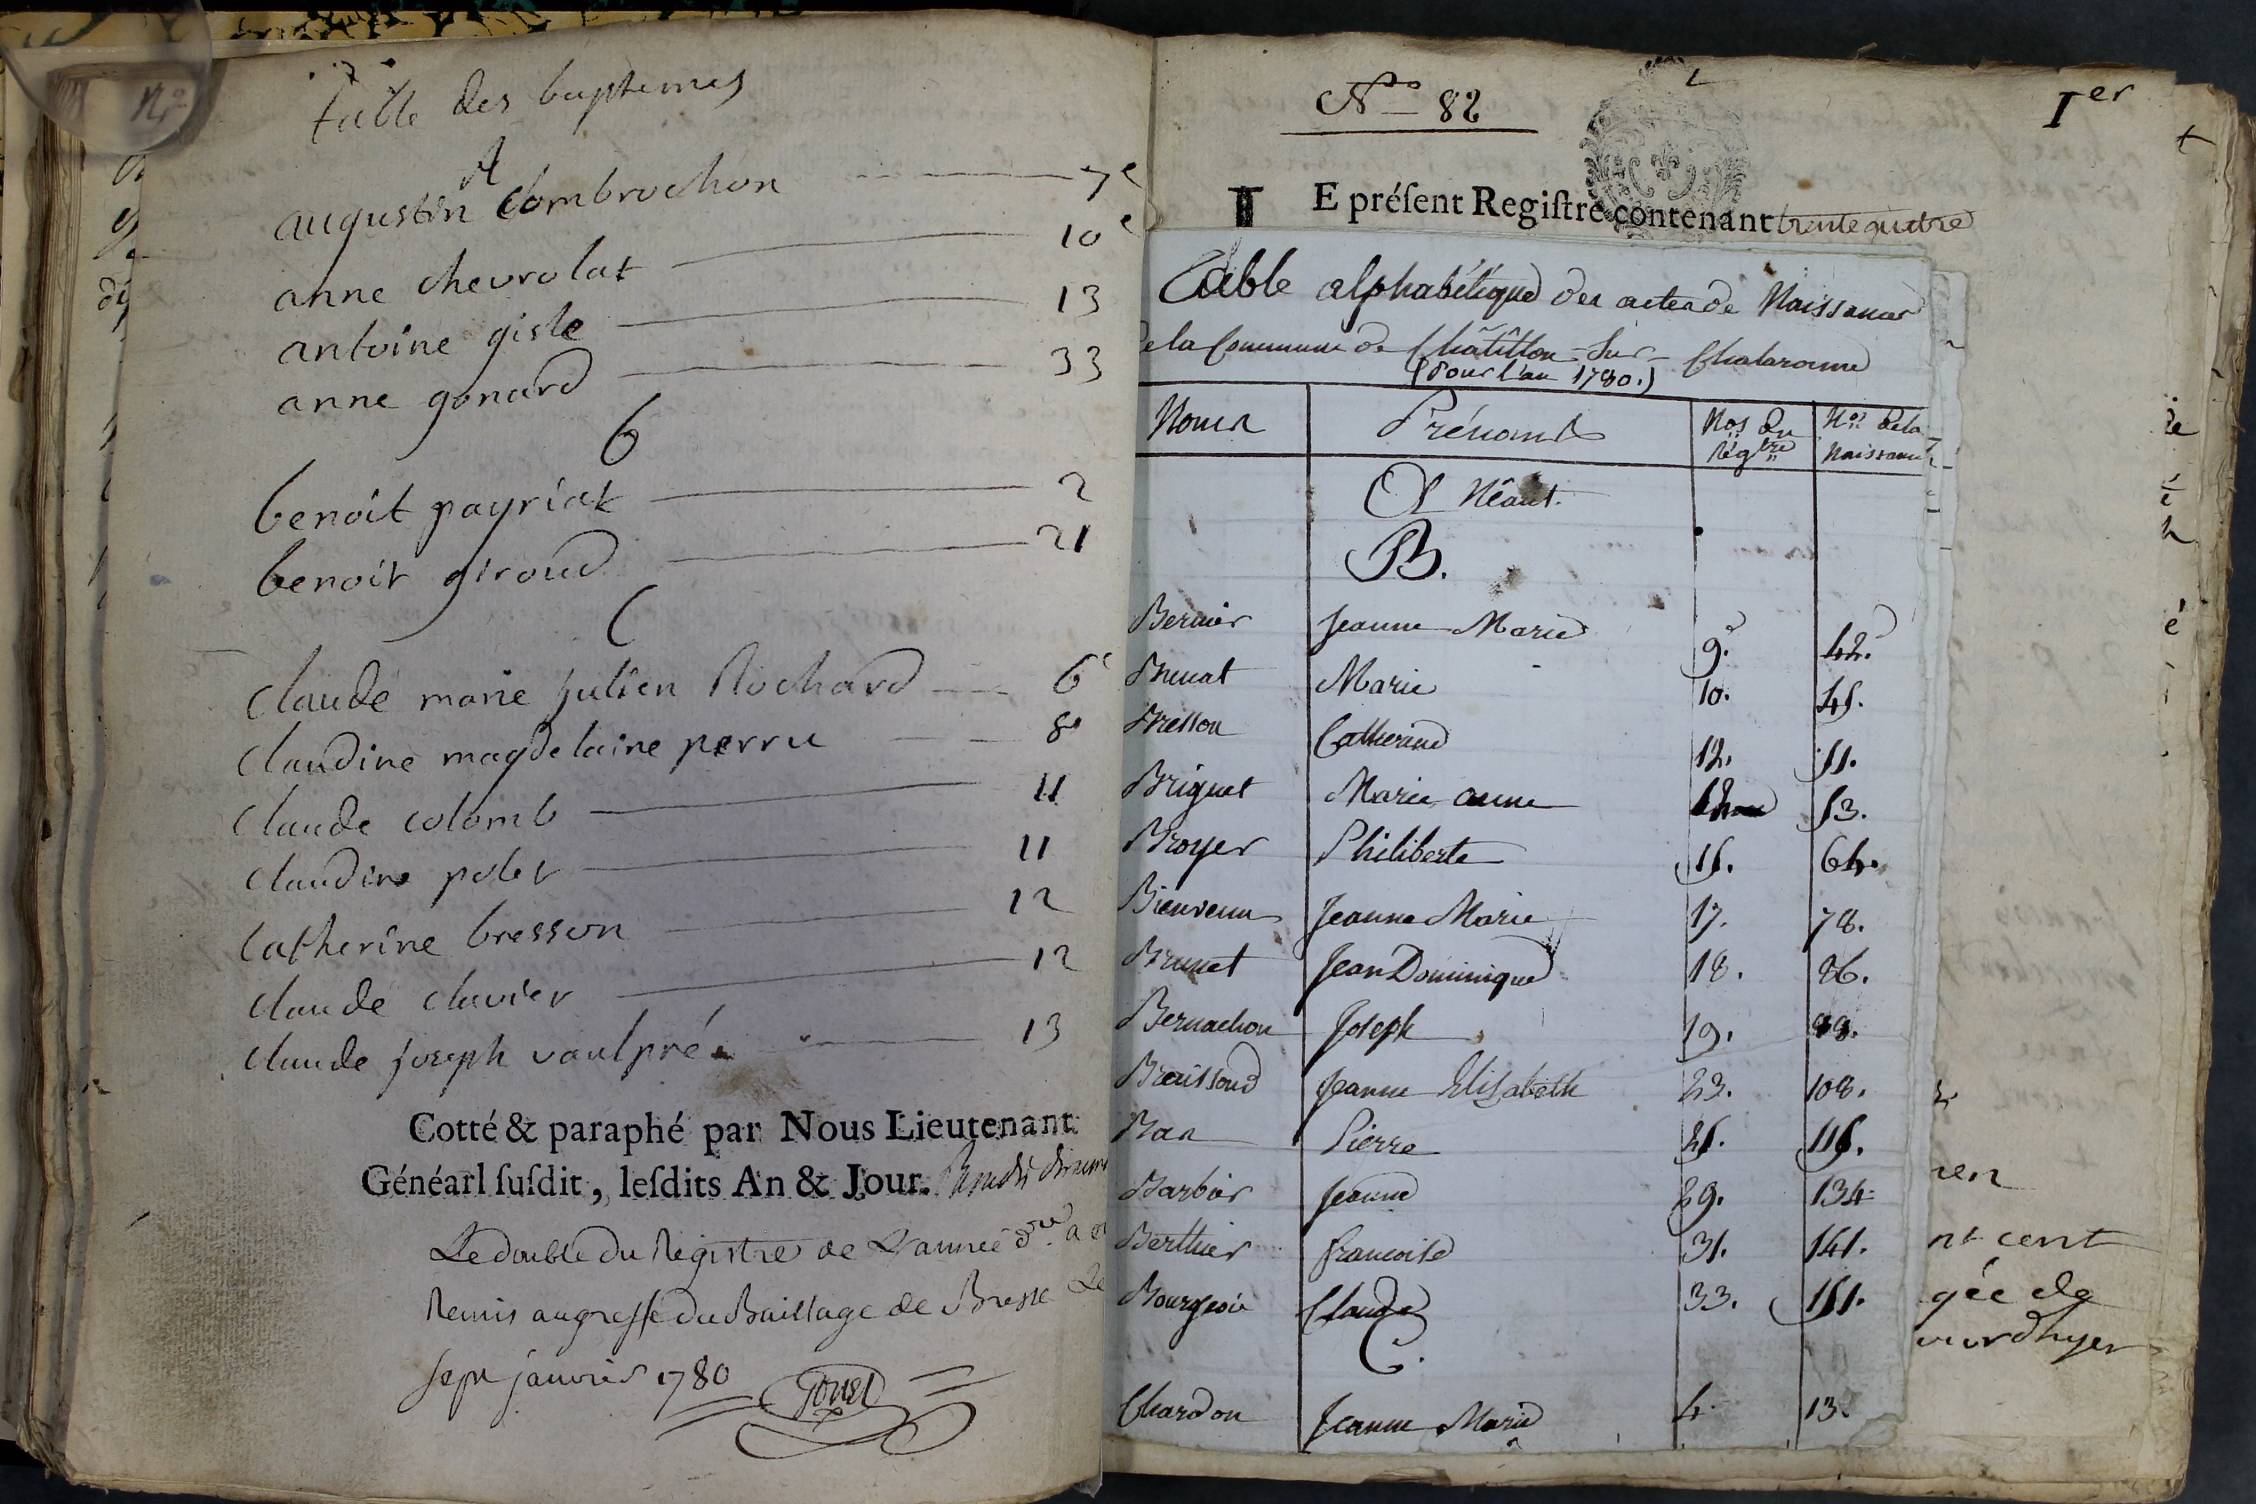 table des baptemes
A
augustin Combrochon 7e
anne chevrolat 10e
antoine gisle 13
anne gonard 33
b
benoît payriat 2
benoit giroud 21
C
claude marie julien Rochard 6e
claudine magdelaine perru 8e
claude colomb 11
claudine polet 11
Catherine bresson 12
claude clavier 12
claude joseph vaulpré 13
Cotté & paraphé par Nous Lieutenant
Généarl ſuſdit, leſdits An & Jour.
Le double du Registre de L'année dre a
Remis au greffe du Baillage de Bresse Le
sept janvier 1780
No 82
Ier
LE préſent Regiſtre contenant trente quatre
Table alphabétique des actes de Naissances
de la Commune de Châtillon-sur-Chalaronne
(Pour l'an 1780.)
Noms Prénoms Nos du Régtre Nos de la Naissance
A Néant.
B.
Bernier Jeanne Marie 9. 42.
Brunat Marie 10. 45.
Bresson Catherine 12. 51.
Briguet Marie anne 53.
Broyer Philiberte 15. 64.
Bienvenu Jeanne Marie 17. 78.
Brunet Jean Dominique 18. 86.
Bernachon Joseph 19. 88.
Braissoud Jeanne Elisabeth 23. 108.
Ban Pierre 25. 115.
Barbier Jeanne 29. 134.
Berthier francoise 31. 141.
Bourgeois Claude 33. 151.
C.
Chardon Jeanne Marie 4. 13.
nt cent
gée de